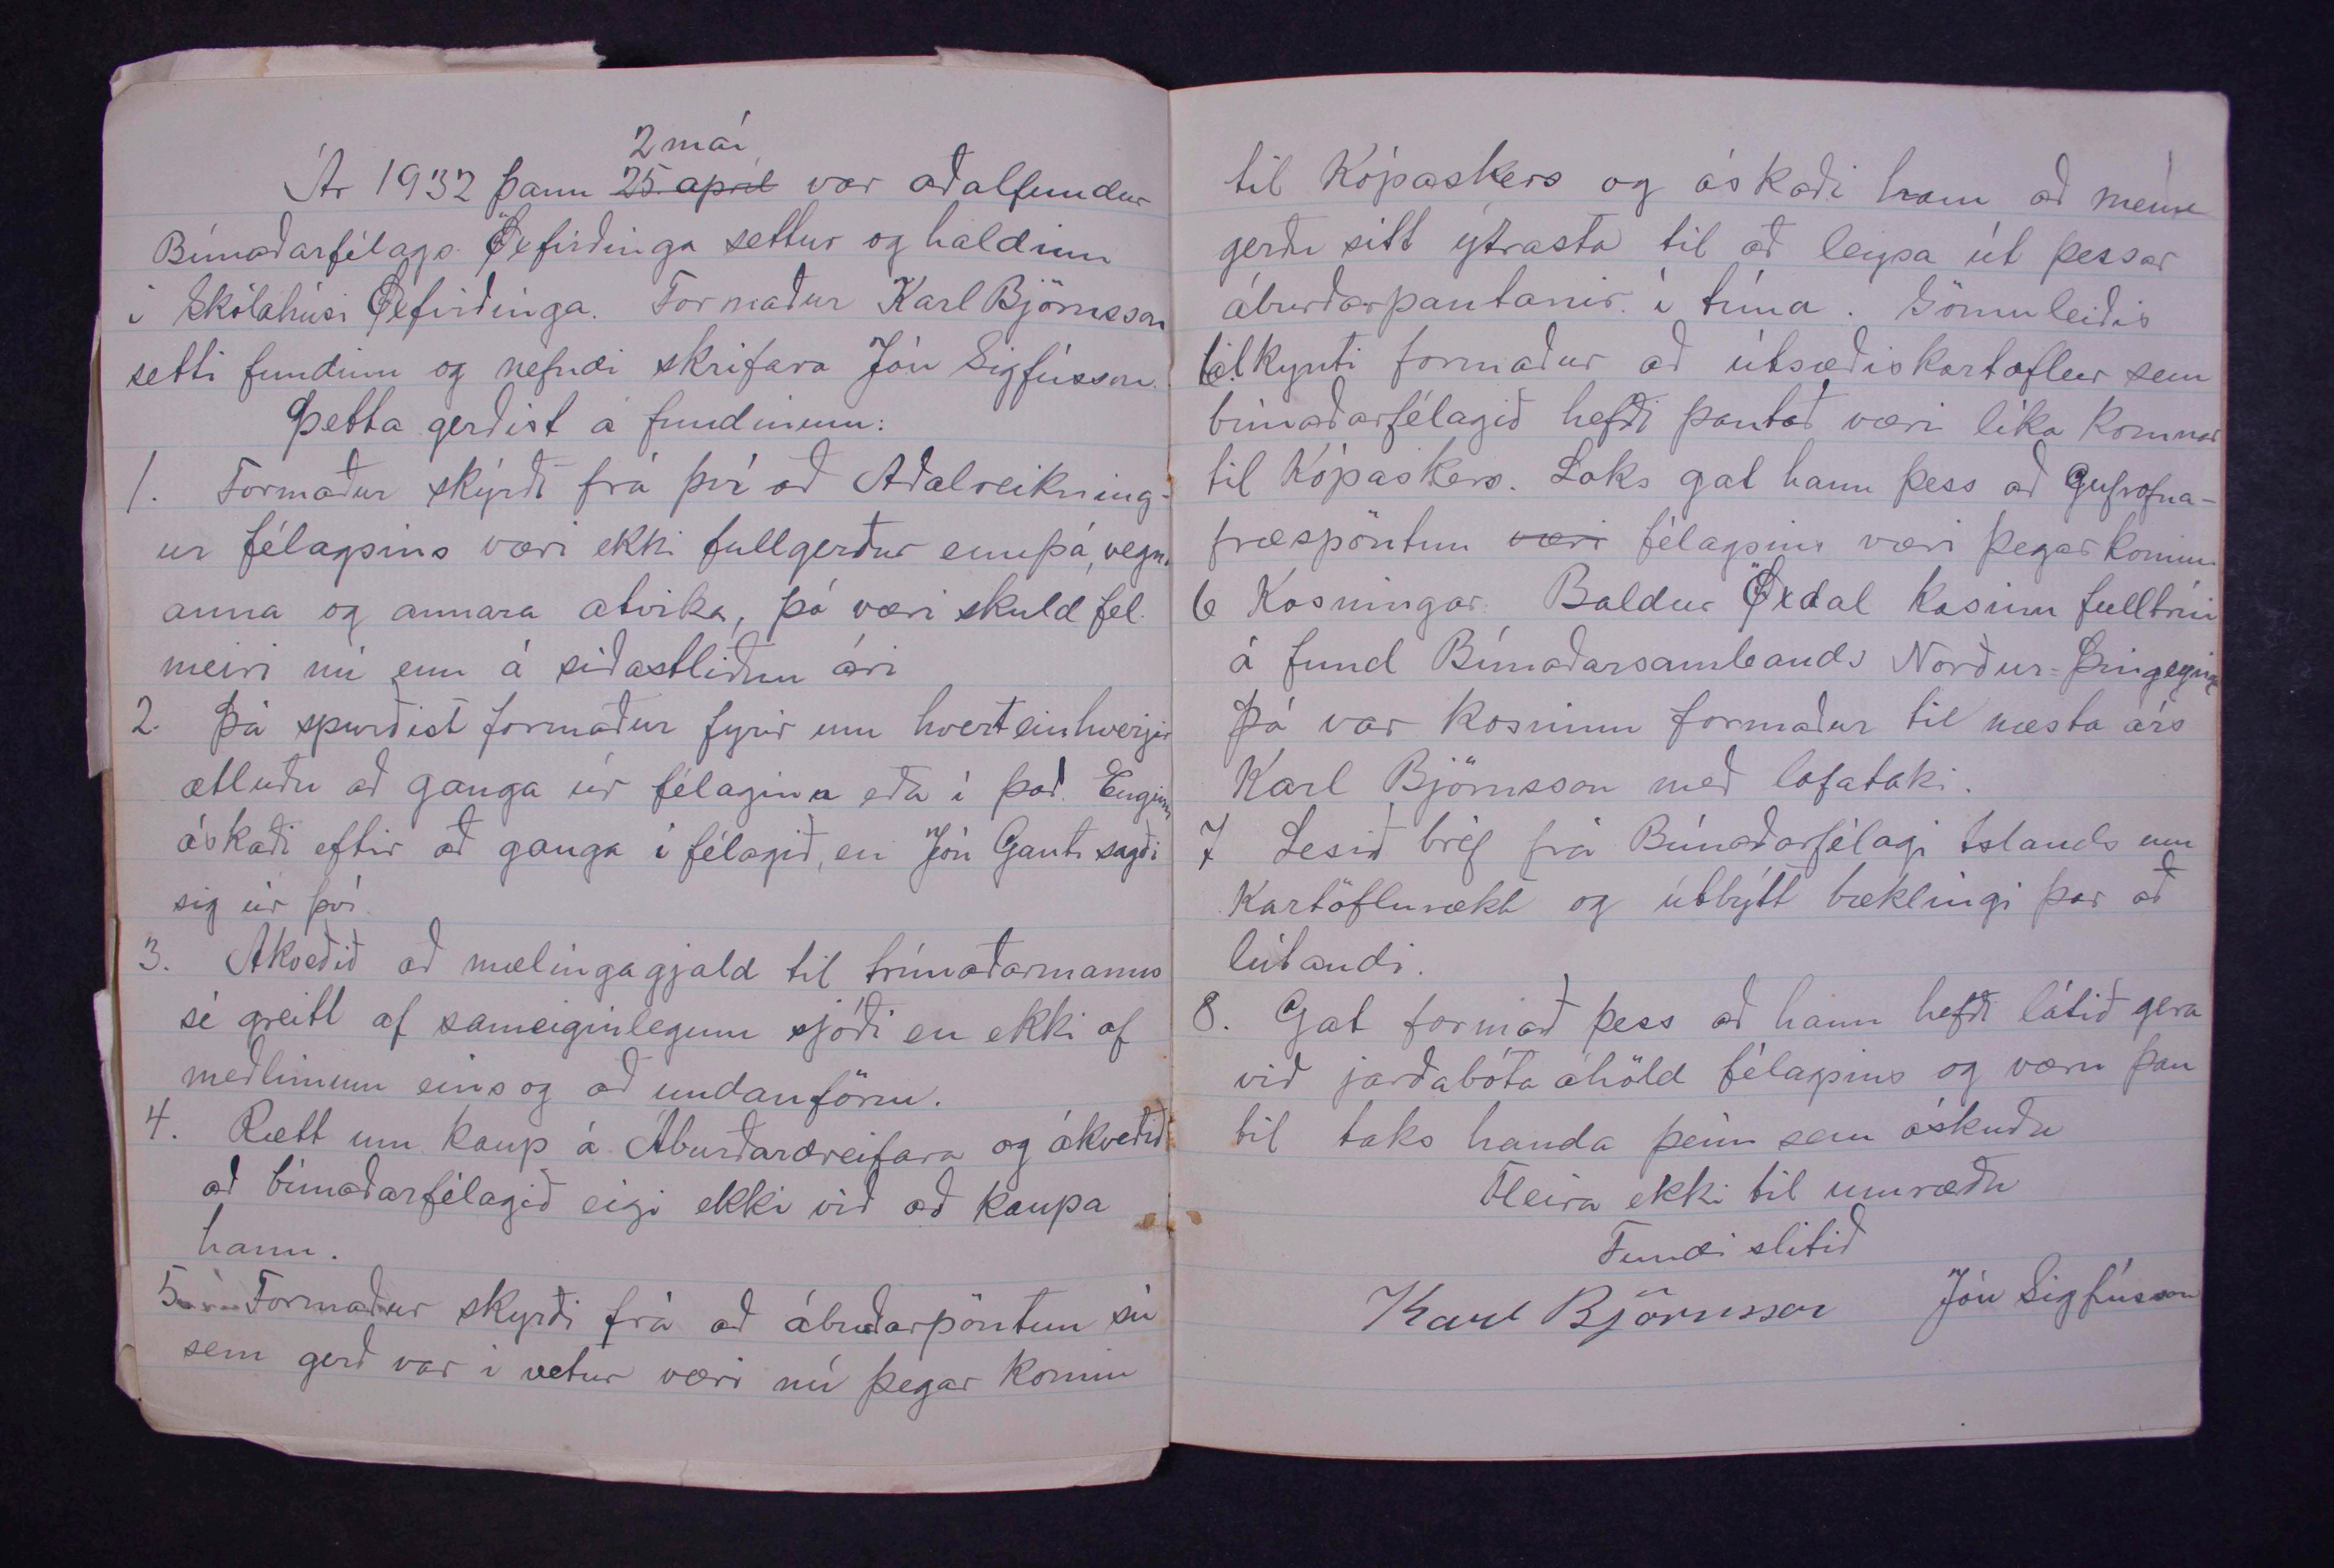 2 maí
Ár 1932 þann 25. apríl var aðalfundur
Búnaðarfélags Öxfirðinga settur og haldinn
í Skólahúsi Öxfirðinga. Formaður Karl Björnsson
setti fundinn og nefndi skrifara Jón Sigfússon.
Þetta gerðist á fundinum:
1. Formaður skýrði frá því að Aðalreikning-
ur félagsins væri ekki fullgerður ennþá, vegna
anna og annara atvika, þó væri skuld fél.
meiri nú enn á síðastliðnu ári
2. Þá spurðist formaður fyrir um hvert einhverjir
ætluðu að ganga úr félaginu eða í það. Enginn
óskaði eftir að ganga í félagið, en Jón Gauti sagði
sig úr því.
3. Akveðið að mælingagjald til trúnaðarmanns
sé greitt af sameiginlegum sjóði en ekki af
meðlimum eins og að undanförnu.
4. Rætt um kaup á Áburðardreifara og ákveðið
að búnaðarfélagið eigi ekki við að kaupa
hann.
5. Formaður skyrði frá að ábuðarpöntun sú
sem gerð var í vetur væri nú þegar komin
til Kópaskers og óskaði hann að menn
gerðu sitt ýtrasta til að leysa út þessar
áburðarpantanir í tíma. Sömuleiðis
tilkynti formaður að útsæðiskartöflur sem
búnaðarfélagið hefði pantað væri líka komnar
til Kópaskers. Loks gat hann þess að Gulrófna-
fræspöntun væri félagsins væri þegar komin
6 Kosningar. Baldur Öxdal kosinn fulltrúi
á fund Búnaðarsambands Norður-Þingeyinga
Þá var kosninn formaður til næsta árs
Karl Björnsson með lófataki.
7 Lesið bréf frá Búnaðarfélagi Islands um
Kartöflurækt og útbýtt bæklingi þar að
lútandi.
8. Gat formað þess að hann hefði látið gera
við jarðabóta áhöld félagsins og væru þau
til taks handa þeim sem óskuðu
Fleira ekki til umræðu
Fundi slitið
Karl Björnsson Jón Sigfússon